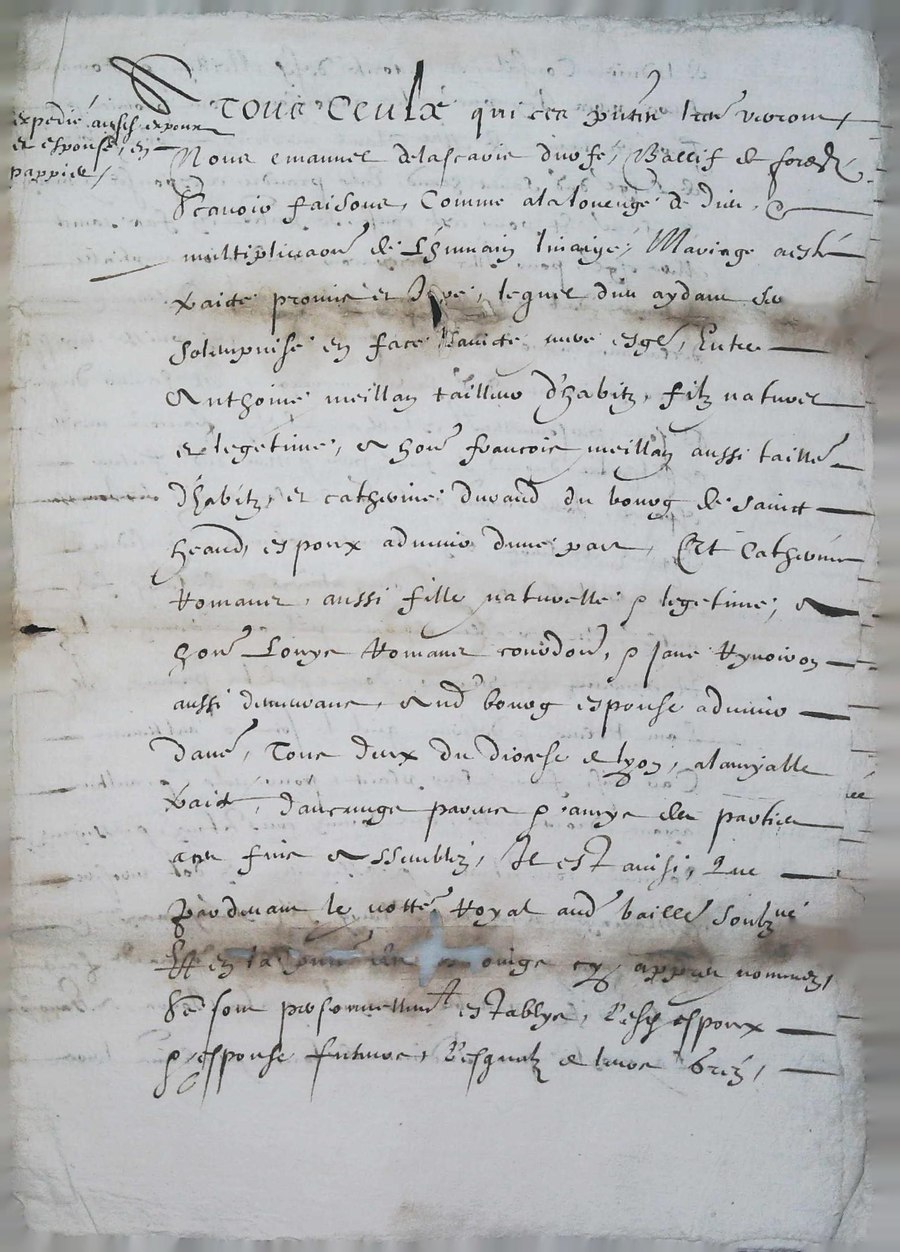 expedié ausd espoux
et espouse, en
pappier /
A tous ceulx qui ces pntes lres verront /
Nous emanuel delascaris durfe, Ballif de forestz
Scavoir faisons, Comme ala louenge de dieu, &
multiplicaon de Lhumain linaige, Mariage aesté
traicte promis et Jure, lequel dieu aydant sera
solempnise en face saincte mere esgle, Entre
Anthoine meillan tailleur d'habitz, filz naturel
et legetime, de honr francois meillan aussi tailler
d'habitz, et catherine durand du bourg de sainct
heand, espoux advenir dune part, Et Catherine
Romanet, aussi fille naturelle & legetime, de
honr Lonys Romanet courdoir, & Jane
aussi demeurans, aud bourg espouse advenir
daure, Tous deux du diocese de lyon, alamyalle
traicte, daucungs parens & amys des parties
aces fins assemblez, Il est ainsi, Que
pardevant le nottre Royal aud baille soubzné
Et en la cy appres nommez,
Se sont personnellemt establys, lesd espoux
& espouse futurs, lesquelz de leurs grez,